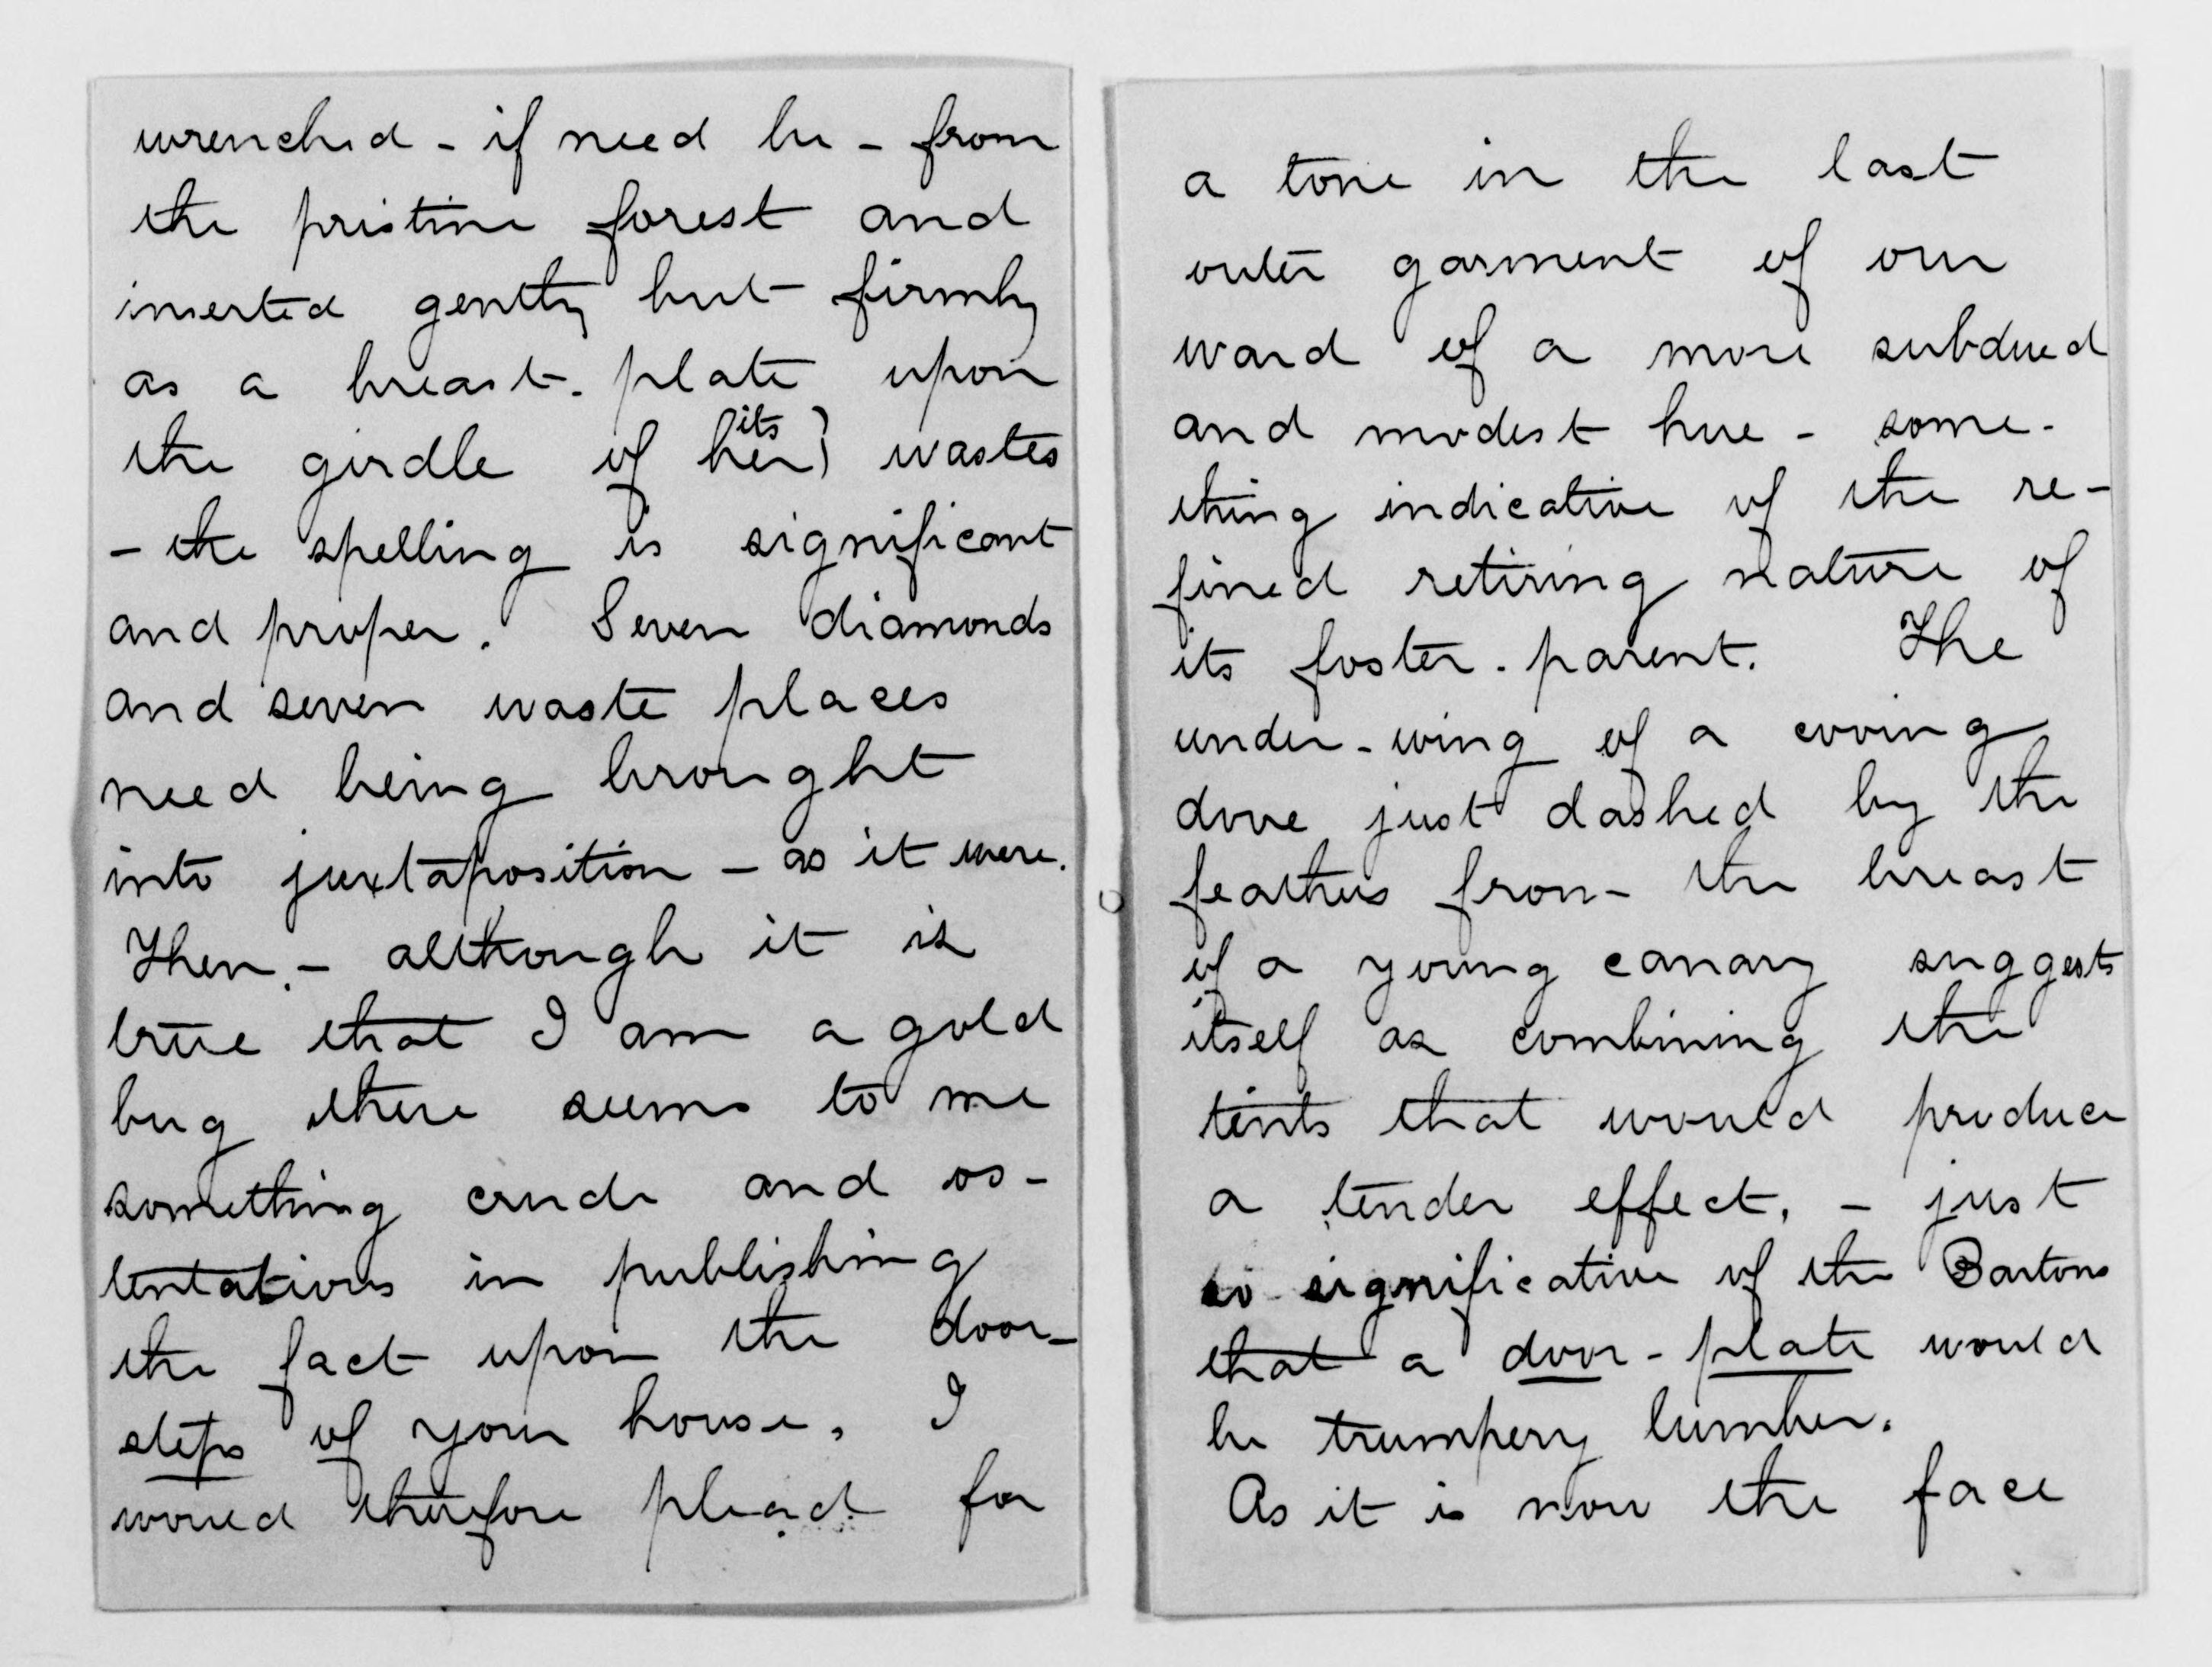 wrenched - if need be - from
the pristine forest and
inserted gently but firmly
as a breast-plate upon
the girdle of her its) wastes
- the spelling is significant
and proper. Seven diamonds
and seven waste places
need being brought
into juxtaposition - as it were.
Then, - although it is
true that I am a gold
bug there seems to me
something crude and os-
tentatious in publishing
the fact upon the door-
steps of your house, I
would therefore plead for
a tone in the last
outer garment of our
ward of a more subdued
and modest hue - some-
thing indicative of the re-
fined retiring nature of
its foster-parent. The
under-wing of a cooing
dove just dashed by the
feathers from the breast
of a young canary suggests
itself as combining the
tints that would produce
a tender effect, - just
so significative of the Bartons
that a door-plate would
be trumpery lumber.
As it is now the face